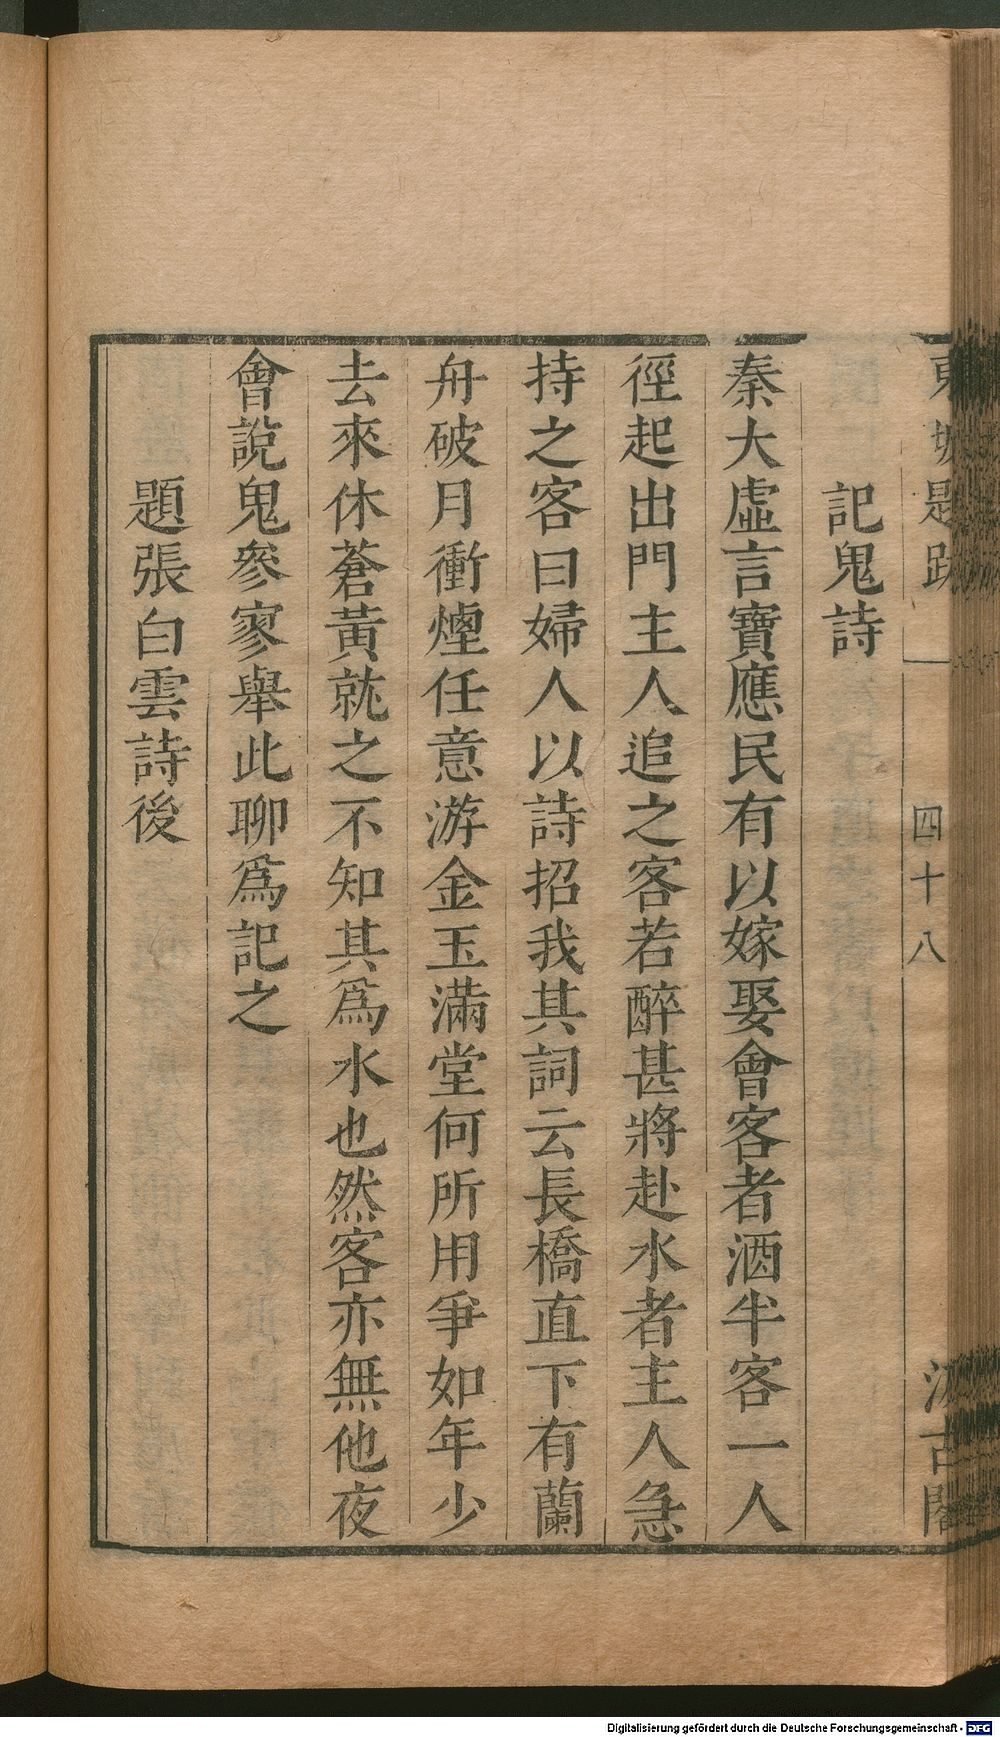 東坡題跋 一 四十八 汲古閣
記鬼詩
秦大虛言寶應民有以嫁娶會客者酒半客一人
徑起出門主人追之客若醉甚將赴水者主人急
持之客曰婦人以詩招我其詞云長橋直下有蘭
舟破月衝煙任意游金玉滿堂何所用爭如年少
去來休蒼黃就之不知其爲水也然客亦無他夜
會說鬼參寥舉此聊爲記之
題張白雲詩後
Digitalisierung gefördert durch die Deutsche Forschungsgemeinschaft - DFG